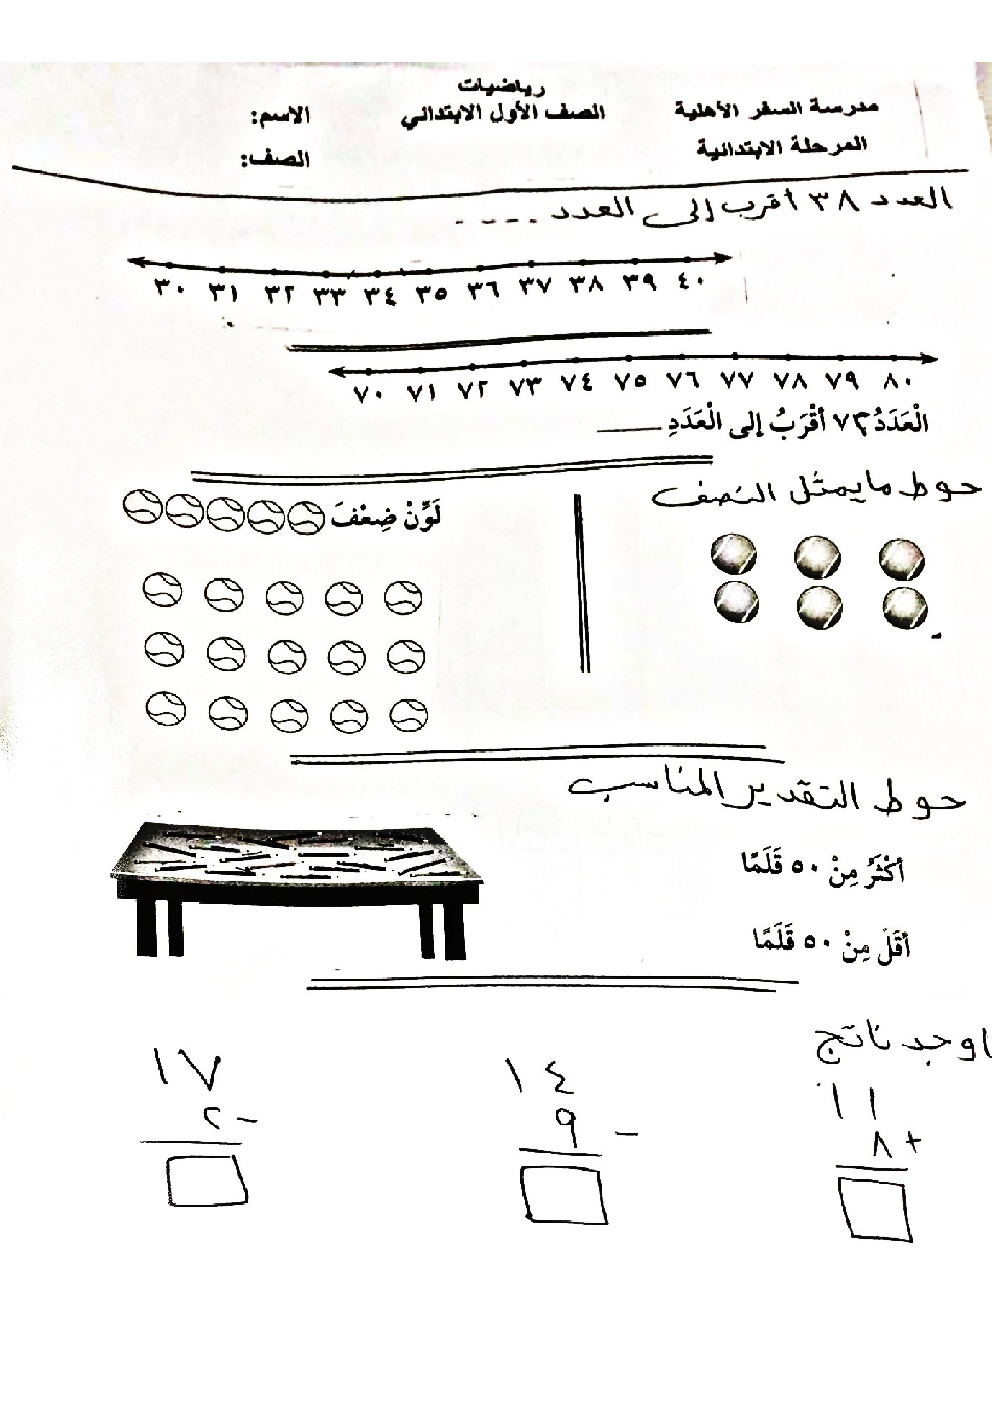 رياضيات
مدرسة السفر الأهلية الصف الأول الابتدائي الاسم:
المرحلة الابتدائية الصف:
العدد ٣٨ أقرب إلى العدد ----
٣٠ ٣١ ٣٢ ٣٣ ٣٤ ٣٥ ٣٦ ٣٧ ٣٨ ٣٩ ٤٠
٧٠ ٧١ ٧٢ ٧٣ ٧٤ ٧٥ ٧٦ ٧٧ ٧٨ ٧٩ ٨٠
الْعَدَدُ ٧٢ أَقْرَبُ إلى الْعَدَدِ ____
حوط ما يمثل النصف
لَوِّنْ ضِعْفَ
حوط التقدير المناسب
أَكْثَرُ مِنْ ٥٠ قَلَمًا
أَقَلّ مِنْ ٥٠ قَلَمًا
اوجد ناتج
١١
٨ +
١٤
٩ -
١٧
٢ -